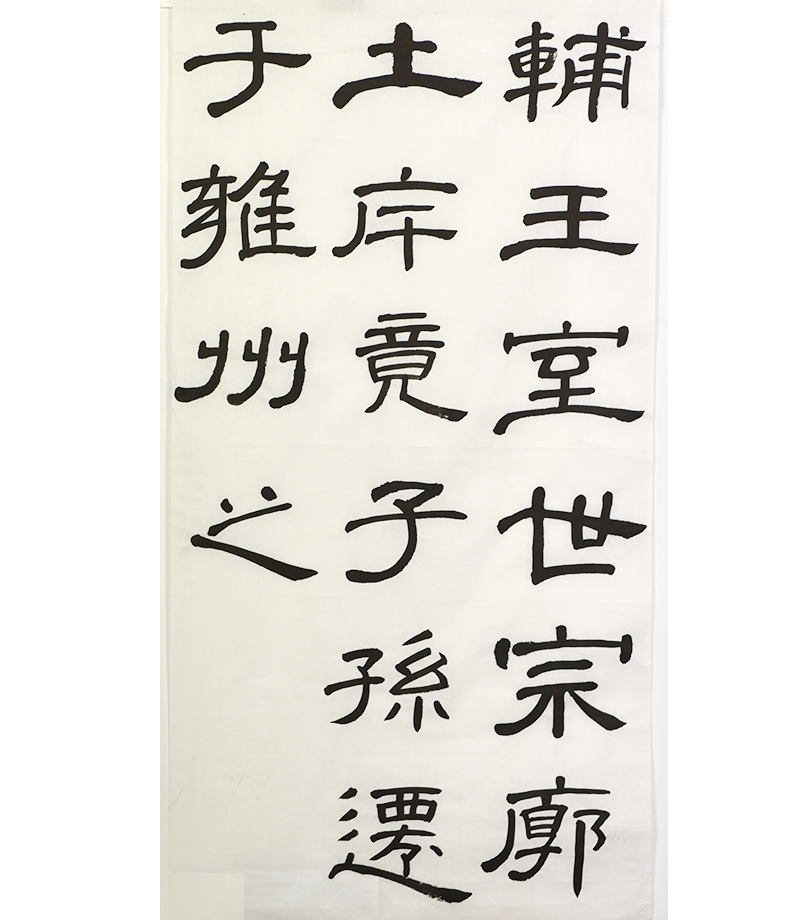 輔王室世宗廓
土斥竟子孫遷
于雍州之